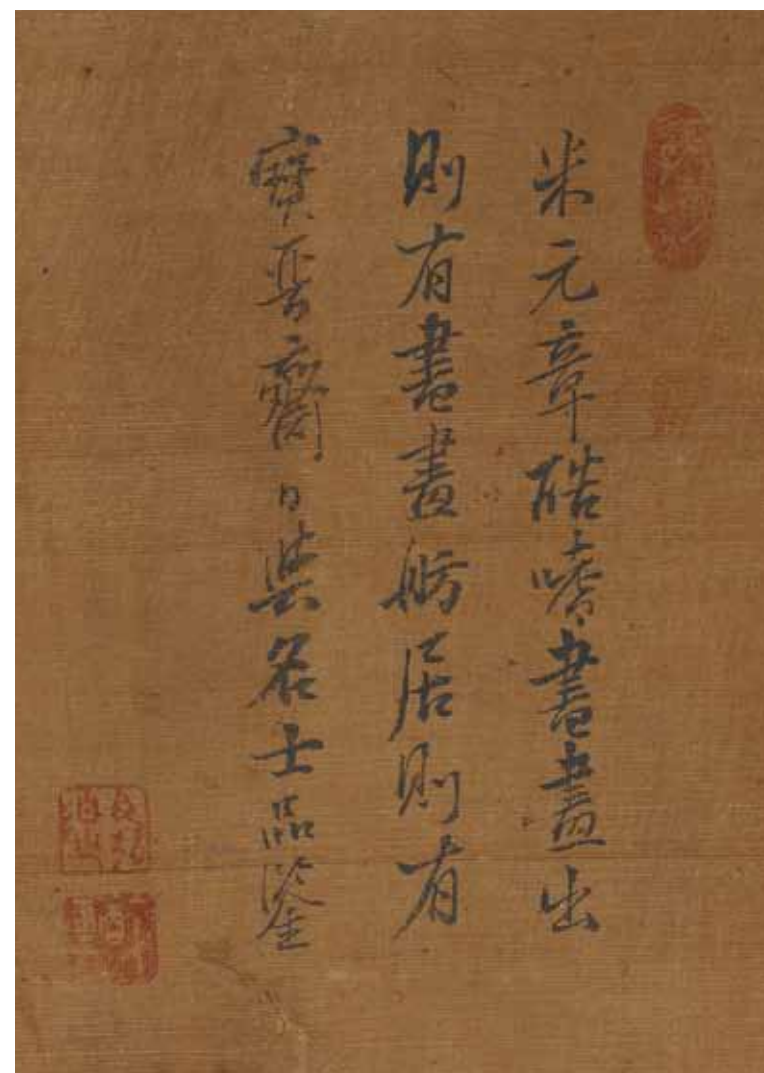 米元章酷嗜書畫出
則有書畫舫居則有
寶晉齋日與名士品鑒